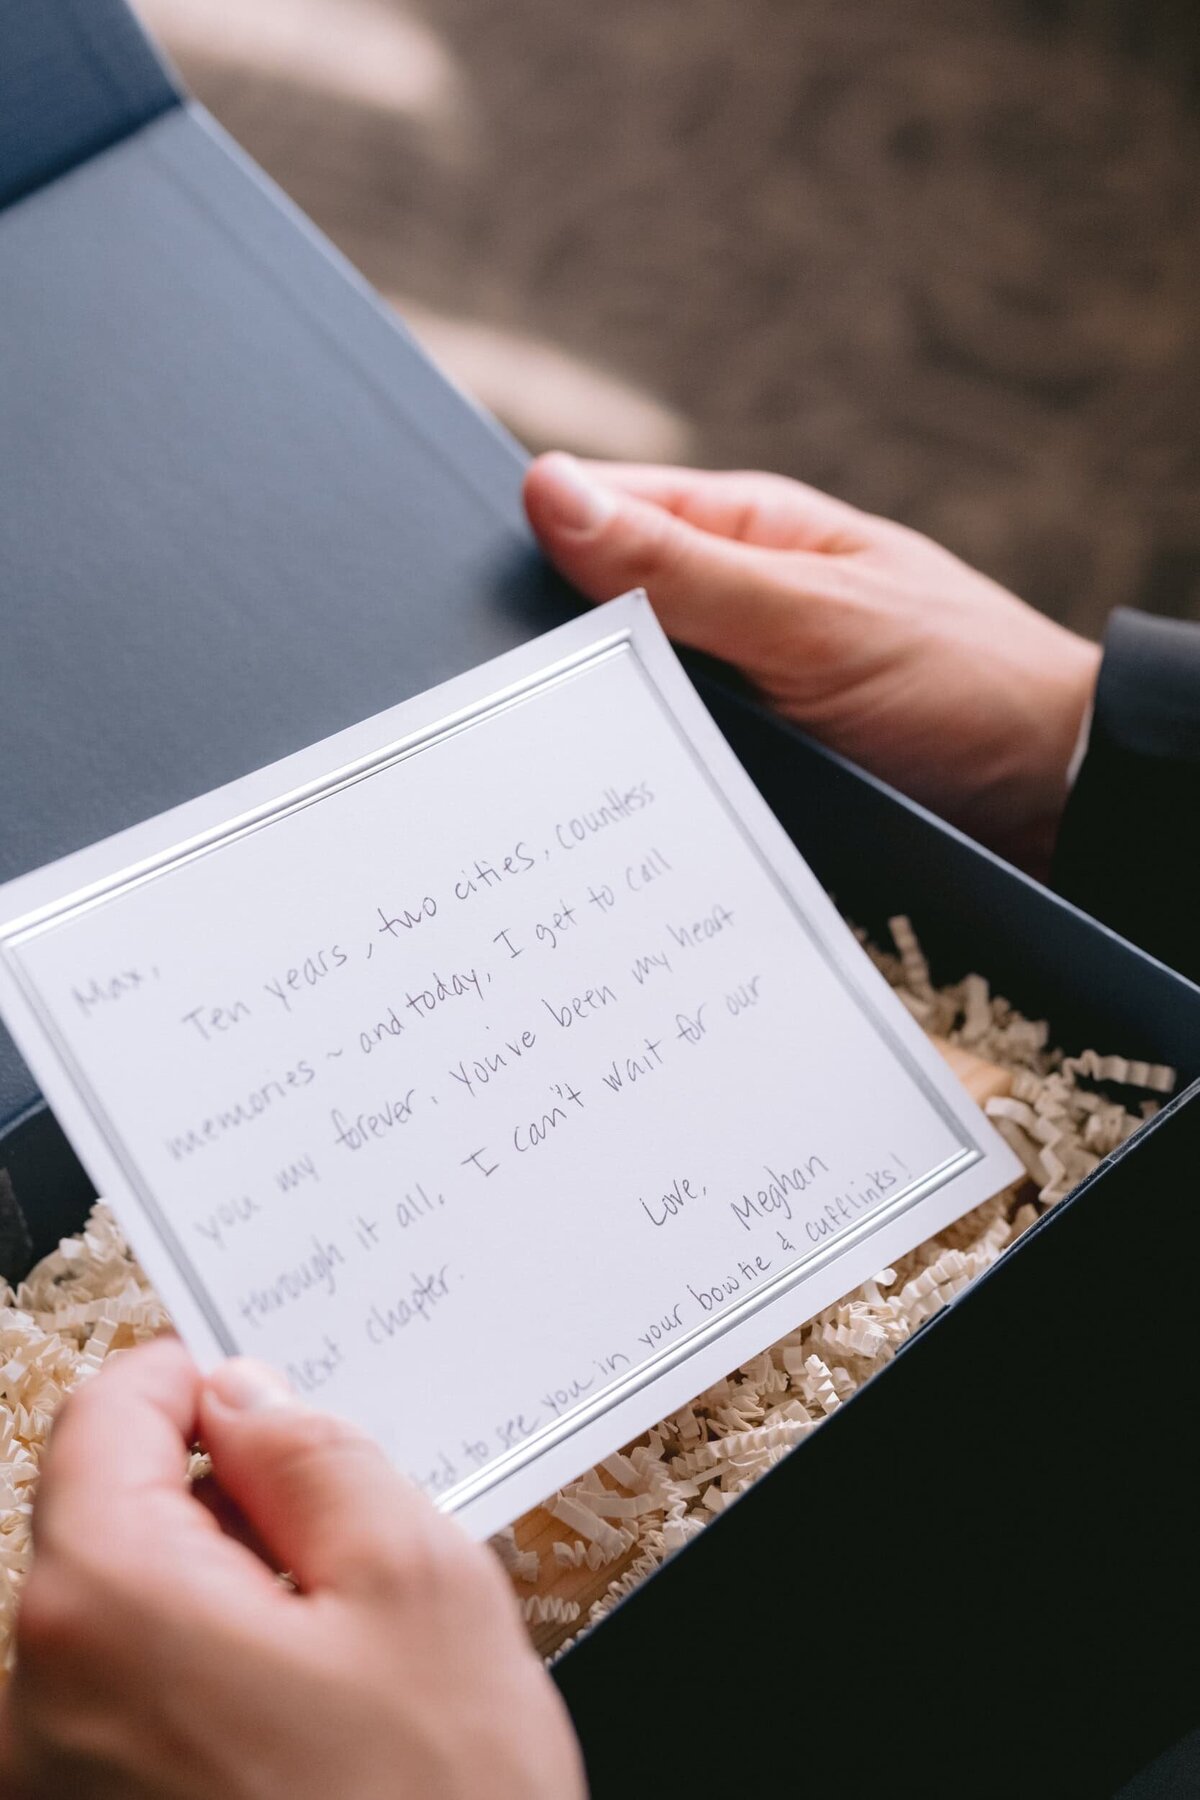 Max,
Ten years, two cities, countless
memories ~ and today, I get to call
you my forever. You've been my heart
through it all. I can't wait for our
next chapter.
Love,
Meghan
to see you in your bowtie & cufflinks!